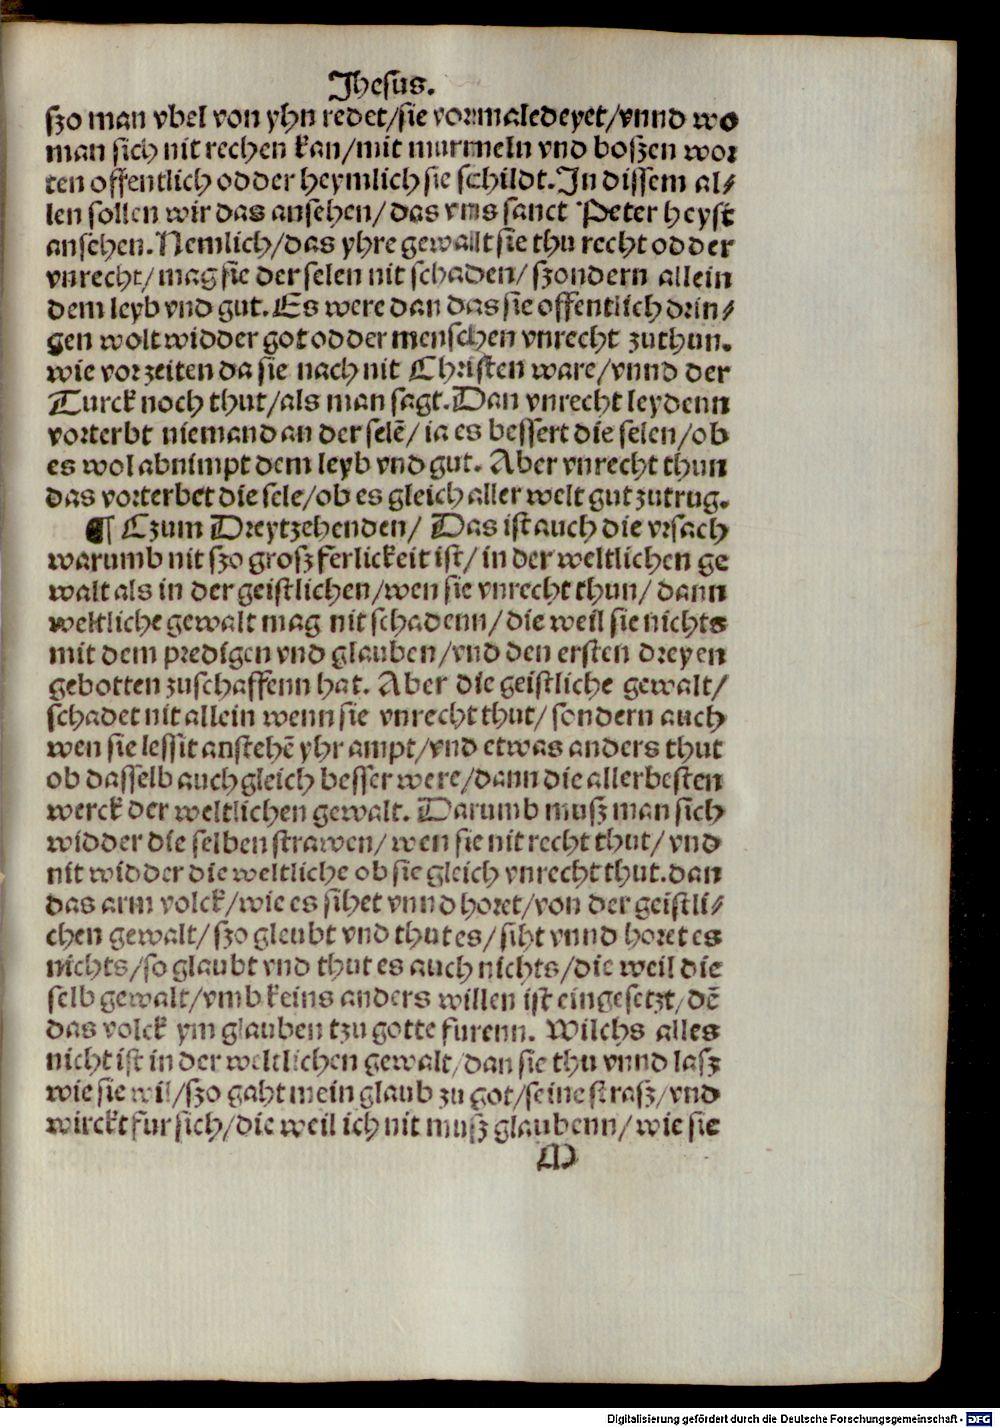 Jhesus.
szo man vbel von yhn redet/sie vormaledeyet/vnnd wo
man sich nit rechen kan/mit murmeln vnd boszen wor
ten offentlich odder heymlich sie schildt. In dissem al/
len sollen wir das ansehen/ das vns sanct Peter heyst
ansehen. Nemlich/das yhre gewallt sie thu recht odder
vnrecht/ mag sie der selen nit schaden/ szondern allein
dem leyb vnd gut. Es were dan das sie offentlich drin/
gen wolt widder got odder menschen vnrecht zuthun.
wie vorzeiten da sie nach nit Christen ware/vnnd der
Turck noch thut/als man sagt. Dan vnrecht leydenn
vorterbt niemand an der selē/ ia es bessert die selen/ob
es wol abnimpt dem leyb vnd gut. Aber vnrecht thun
das vorterbet die sele/ob es gleich aller welt gut zutrug.
¶ Czum Dreytzehenden/ Das ist auch die vrsach
warumb nit szo grosz ferlickeit ist/ in der weltlichen ge
walt als in der geistlichen/wen sie vnrecht thun/ dann
weltliche gewalt mag nit schadenn/die weil sie nichts
mit dem predigen vnd glauben/vnd den ersten dreyen
gebotten zuschaffenn hat. Aber die geistliche gewalt/
schadet nit allein wenn sie vnrecht thut/ sondern auch
wen sie lessit anstehē yhr ampt/vnd etwas anders thut
ob dasselb auch gleich besser were/dann die allerbesten
werck der weltlichen gewalt. Darumb musz man sich
widder die selben strawen/ wen sie nit recht thut/ vnd
nit widder die weltliche ob sie gleich vnrecht thut. dan
das arm volck/wie es sihet vnnd horet/von der geistli/
chen gewalt/ szo gleubt vnd thut es/ siht vnnd horet es
nichts/so glaubt vnd thut es auch nichts/die weil die
selb gewalt/vmb keins anders willen ist eingesetzt/dē
das volck ym glauben tzu gotte furenn. Wilchs alles
nicht ist in der weltlichen gewalt/dan sie thu vnnd lasz
wie sie wil/szo gaht mein glaub zu got/seine strasz/vnd
wirckt fur sich/die weil ich nit musz glaubenn/wie sie
M
Digitalisierung gefördert durch die Deutsche Forschungsgemeinschaft - DFG